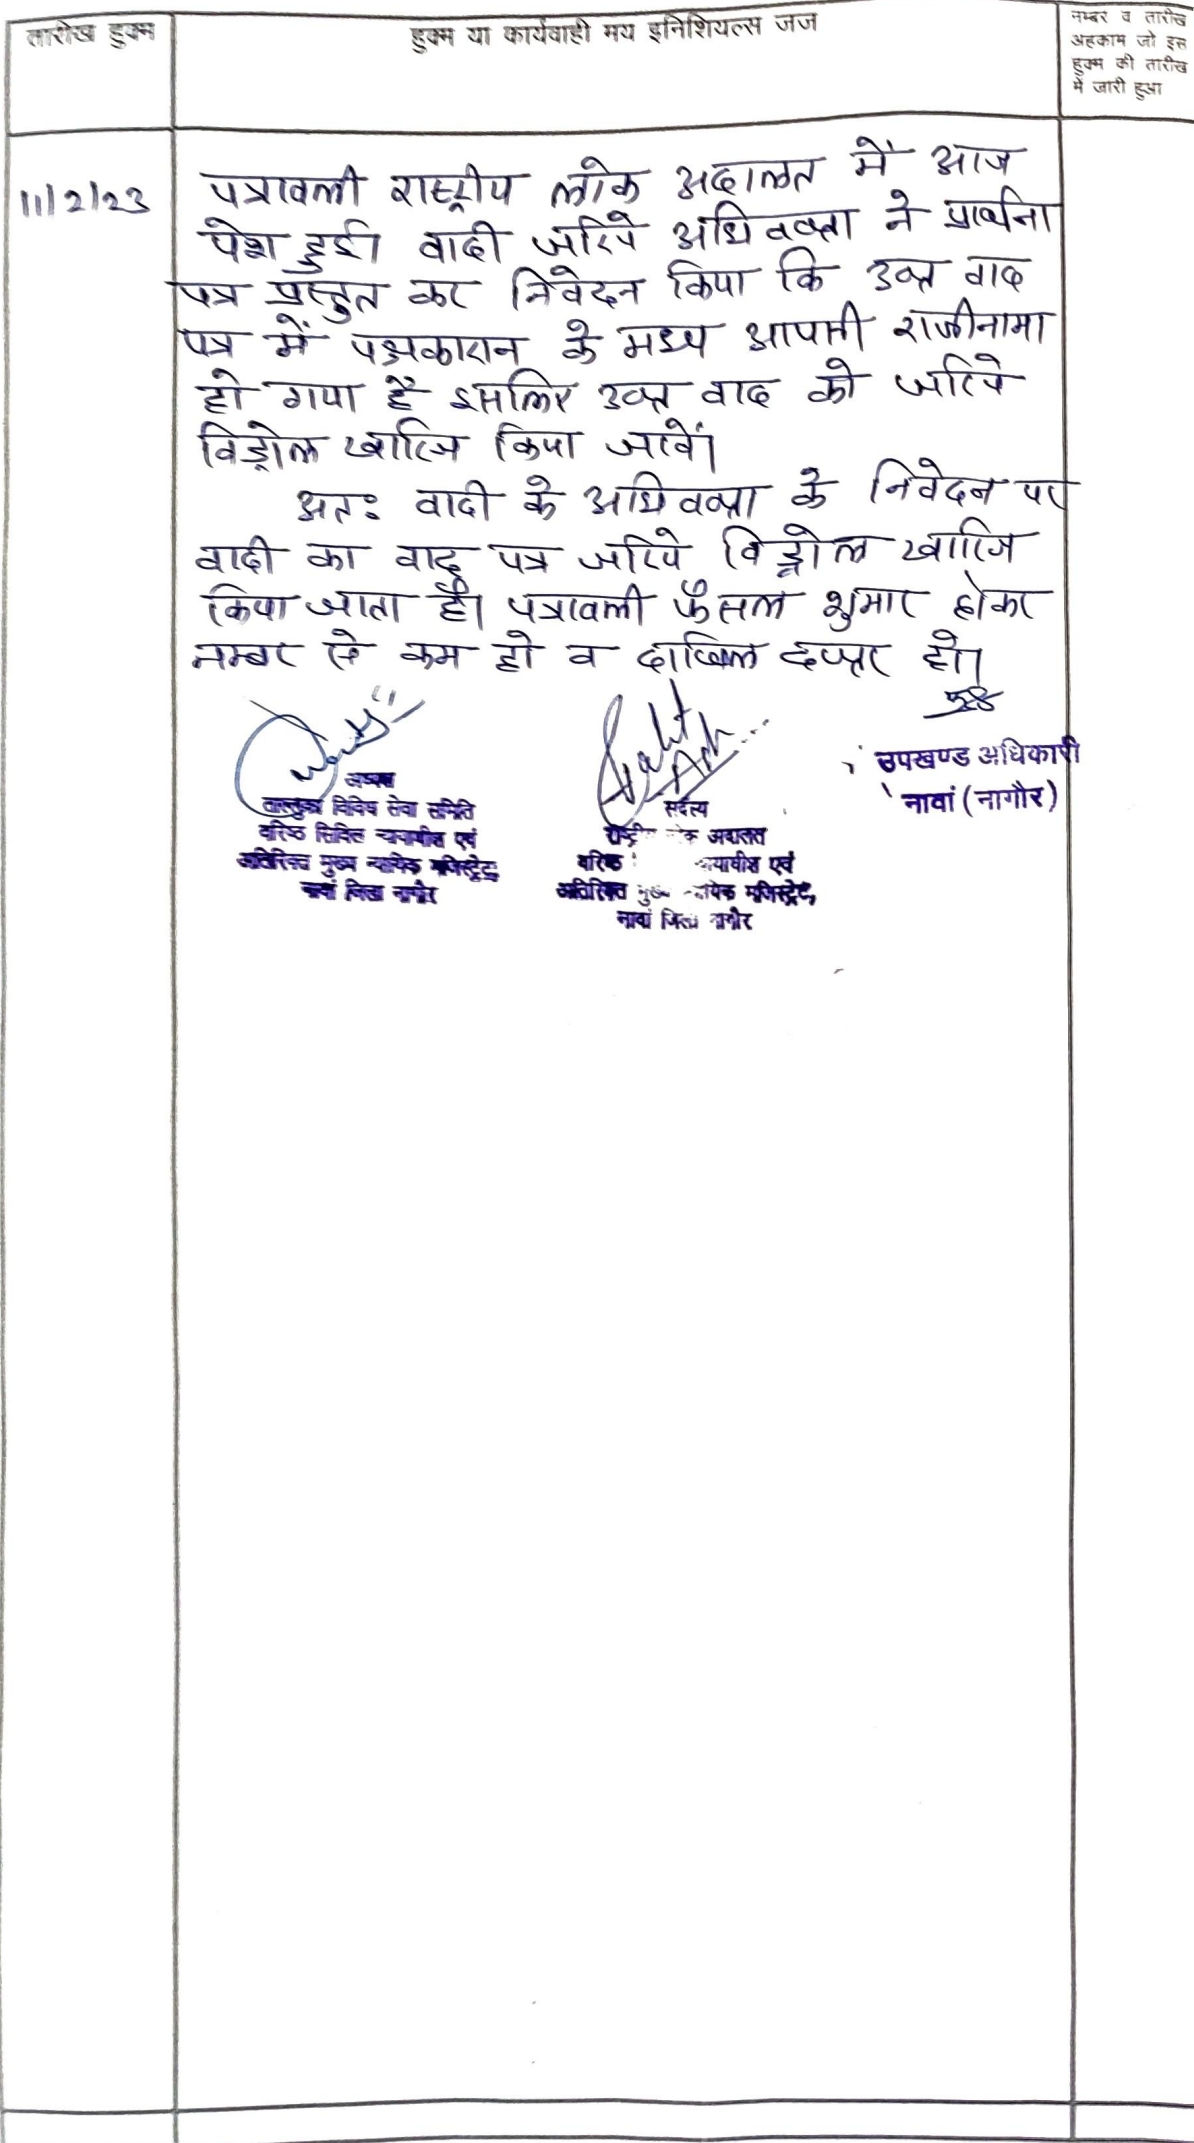 तारीख हुक्म
हुक्म या कार्यवाही मय इनिशियल्स जज
नम्बर व तारीख
अहकाम जो इस
हुक्म की तारीख
में जारी हुआ
11/2/23
पत्रावली राष्ट्रीय लोक अदालत में आज
पेश हुई। वादी जरिये अधिवक्ता ने प्रार्थना
पत्र प्रस्तुत कर निवेदन किया कि उक्त वाद
पत्र में पक्षकारान के मध्य आपसी राजीनामा
हो गया है इसलिए उक्त वाद को जरिये
विड्रोल खारिज किया जावें।
अतः वादी के अधिवक्ता के निवेदन पर
वादी का वाद पत्र जरिये विड्रोल खारिज
किया जाता है। पत्रावली फैसल शुमार होकर
नम्बर से कम हो व दाखिल दफ्तर हो।
उपखण्ड अधिकारी
नावां (नागौर)
अध्यक्ष
ताल्लुका विधिक सेवा समिति
वरिष्ठ सिविल न्यायाधीश एवं
अतिरिक्त मुख्य न्यायिक मजिस्ट्रेट
नावां जिला नागौर
सदस्य
राष्ट्रीय लोक अदालत
वरिष्ठ न्यायाधीश एवं
अतिरिक्त मुख्य न्यायिक मजिस्ट्रेट,
नावां जिला नागौर